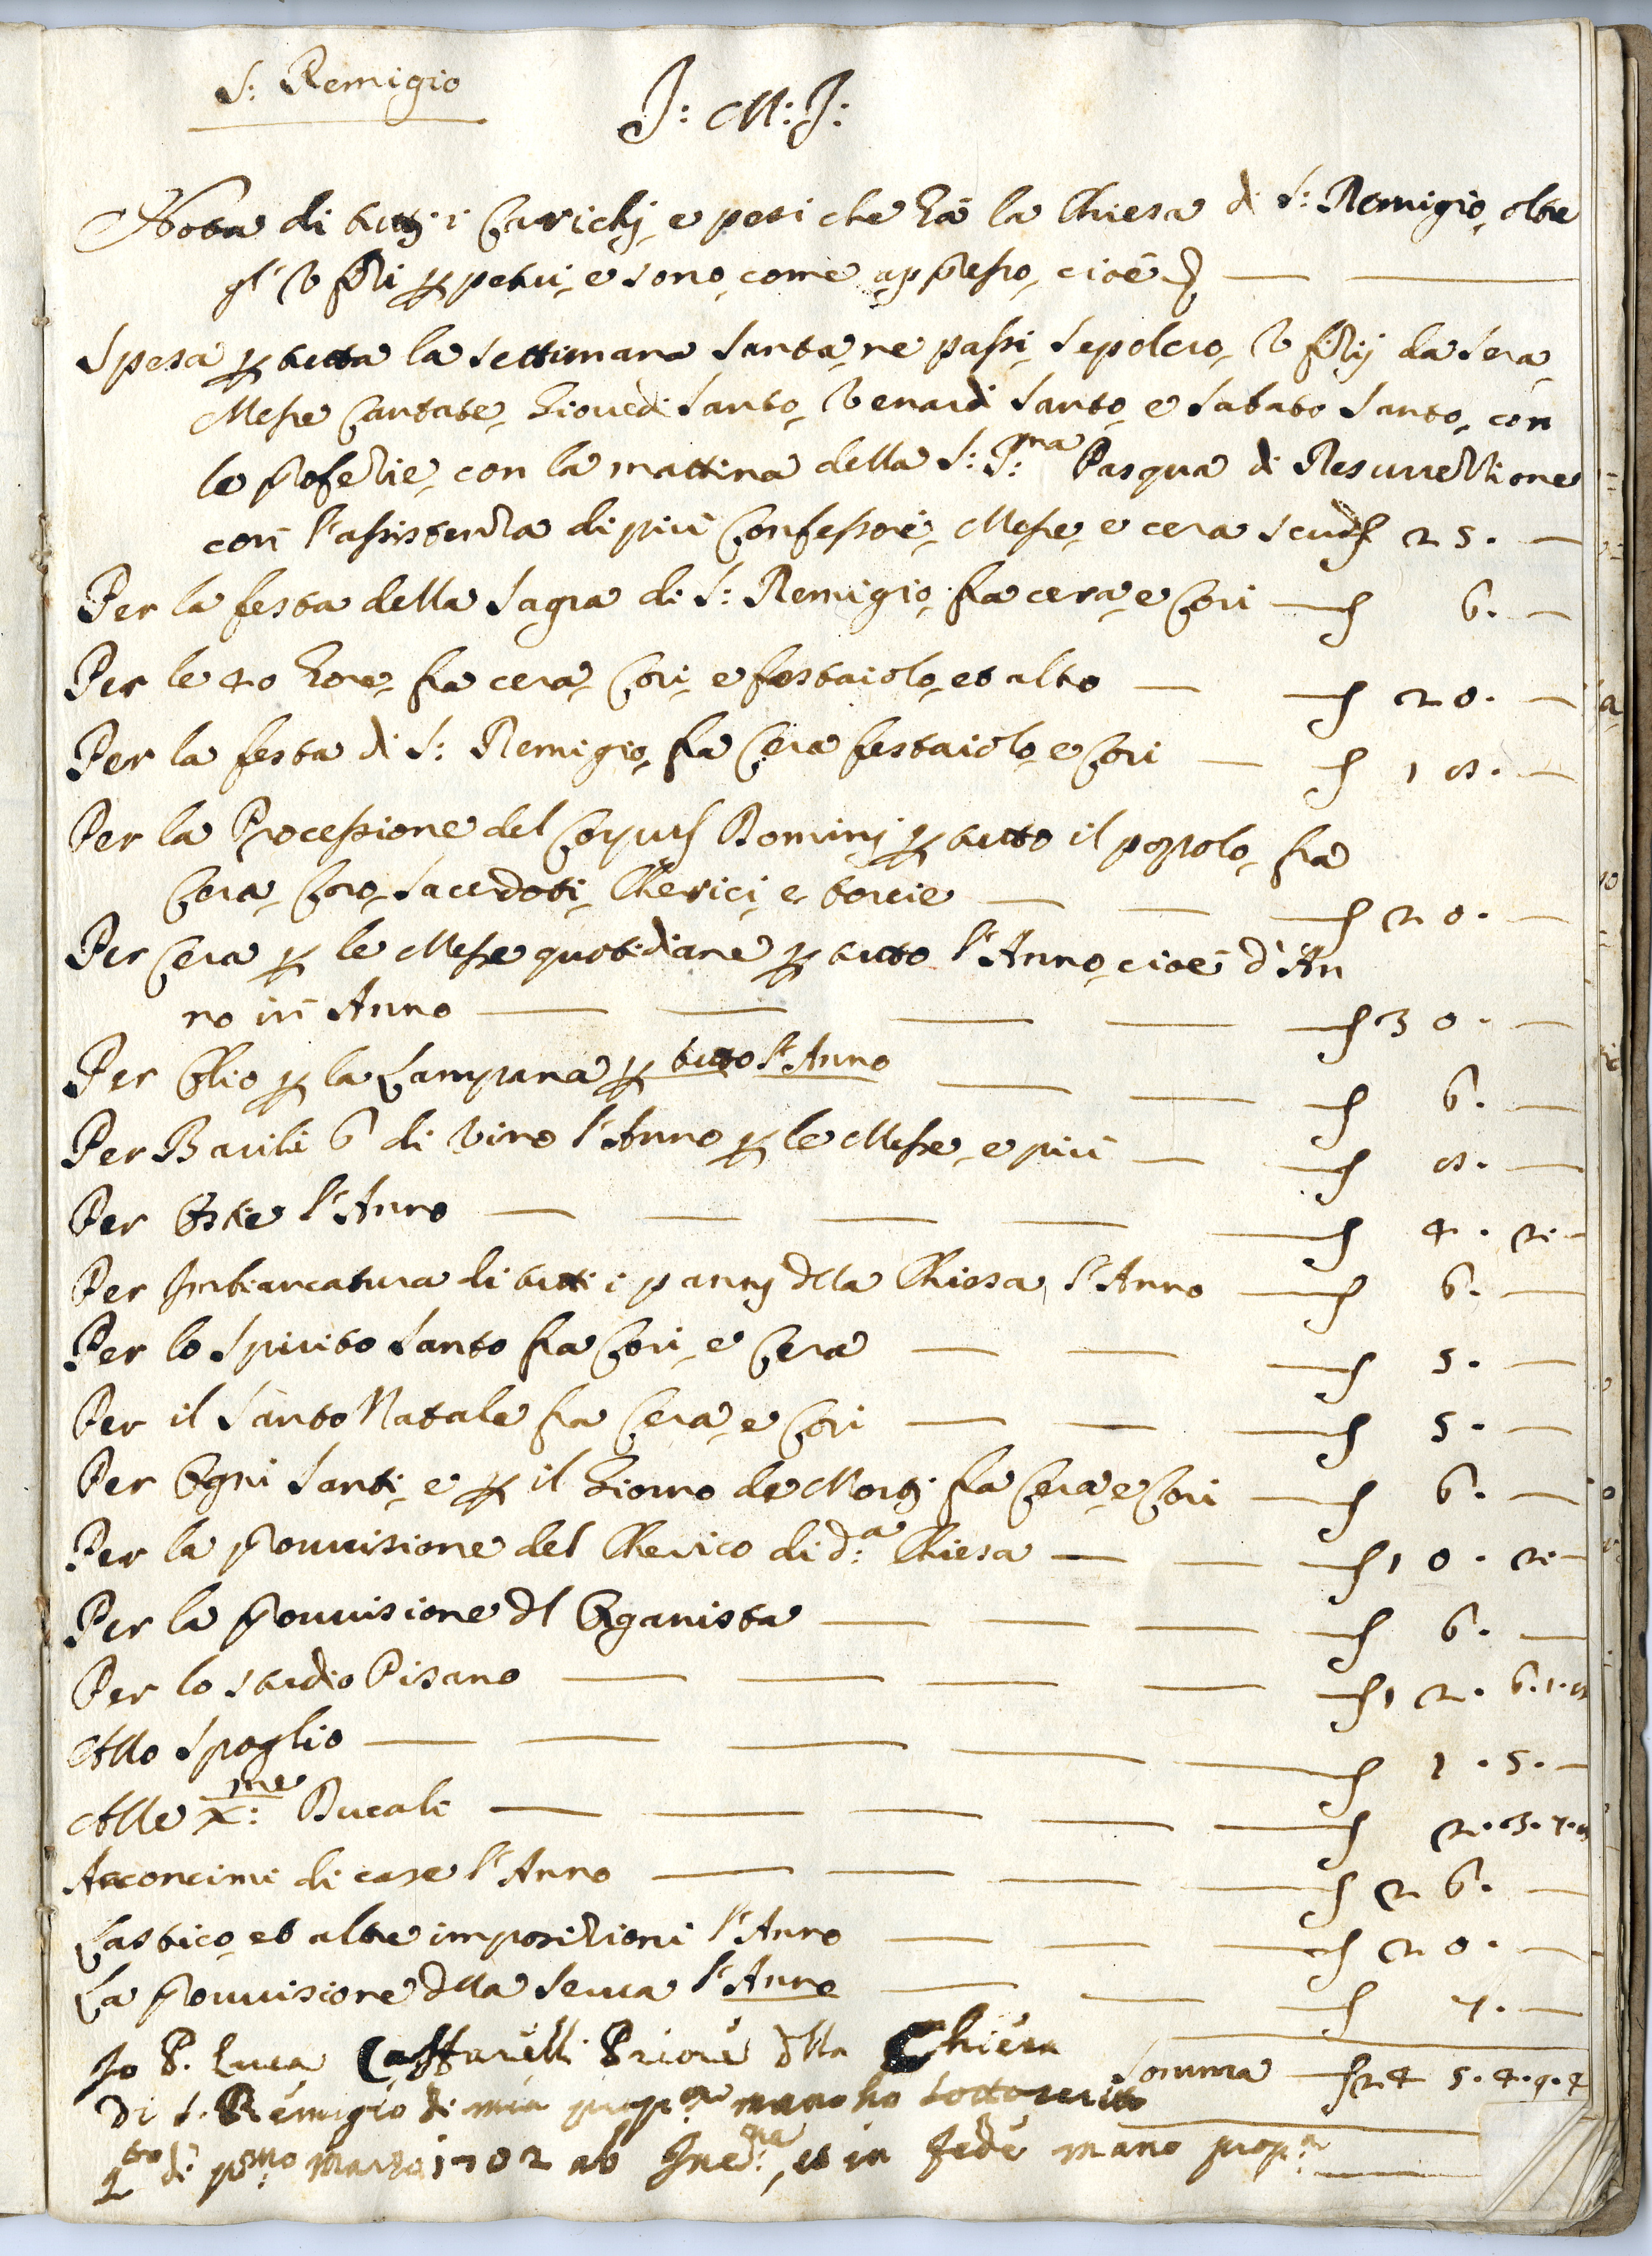 S: Remigio
J: M: J:
Nota di tutti i Carichj, e pesi che hà la Chiesa di S: Remigio, oltre
gl' Vfizi ꝑpetui, e sono, come appresso, cioè
Spesa ꝑ tutta la Settimana Santa, ne passi, Sepolcro, Vfizij la sera
Messe Cantate, Giouedi Santo, Venardi Santo, e Sabato Santo, con
le profezie, con la mattina della S:S:ma Pasqua di Resurrezzione
con l'assistenza di più Confessori, Messe, e cera scudi 25. —
Per la festa della Sagra di S: Remigio, fra cera, e Cori — 6. —
Per le 40 hore, fra cera, Cori, e festaiolo, et altro — 20. —
Per la festa di S: Remigio, fra Cera festaiolo, e Cori — 18. —
Per la Processione del Corpus Dominj ꝑ tutto il popolo, fra
Cera, Coro, Sacerdoti, Cherici, e torcie — 20. —
Per Cera ꝑ le Messe quotidiane ꝑ tutto l'Anno, cioè d'An
no in Anno — 30. —
Per Olio ꝑ la Lampana ꝑ tutto l'Anno — 6. —
Per Barili 6 di Vino l'Anno ꝑ le Messe, e più — 8. —
Per Ostie l'Anno — 4. 2. —
Per Imbiancatura di tutti i pannj della Chiesa, l'Anno — 6. —
Per lo Spirito Santo fra Cori, e Cera — 5. —
Per il Santo Natale fra Cera, e Cori — 5. —
Per Ogni Santi, e ꝑ il Giorno de Morti fra Cera, e Cori — 6. —
Per la prouuisione del Cherico di d:a Chiesa — 10. 2. —
Per la prouuisione dl Organista — 6. —
Per lo studio Pisano — 12. 6. 1. 8
Allo Spoglio — 1. 5. —
Alle X:me Ducali — 2. 3. 7. 8
Acconcimi di case l'Anno — 26. —
Lastico, et altre imposizioni l'Anno — 20. —
La prouuisione della Serua l'Anno — 7. —
Somma — 24 5. 4. 9. 4
Io P. Luca Caffarelli Priore dlla Chiesa
di S. Remigio di mia prop:a mano ho sottoscritto
q:to dì p:mo Marzo 1702 ab Inc:ne, et in fede mano prop:a